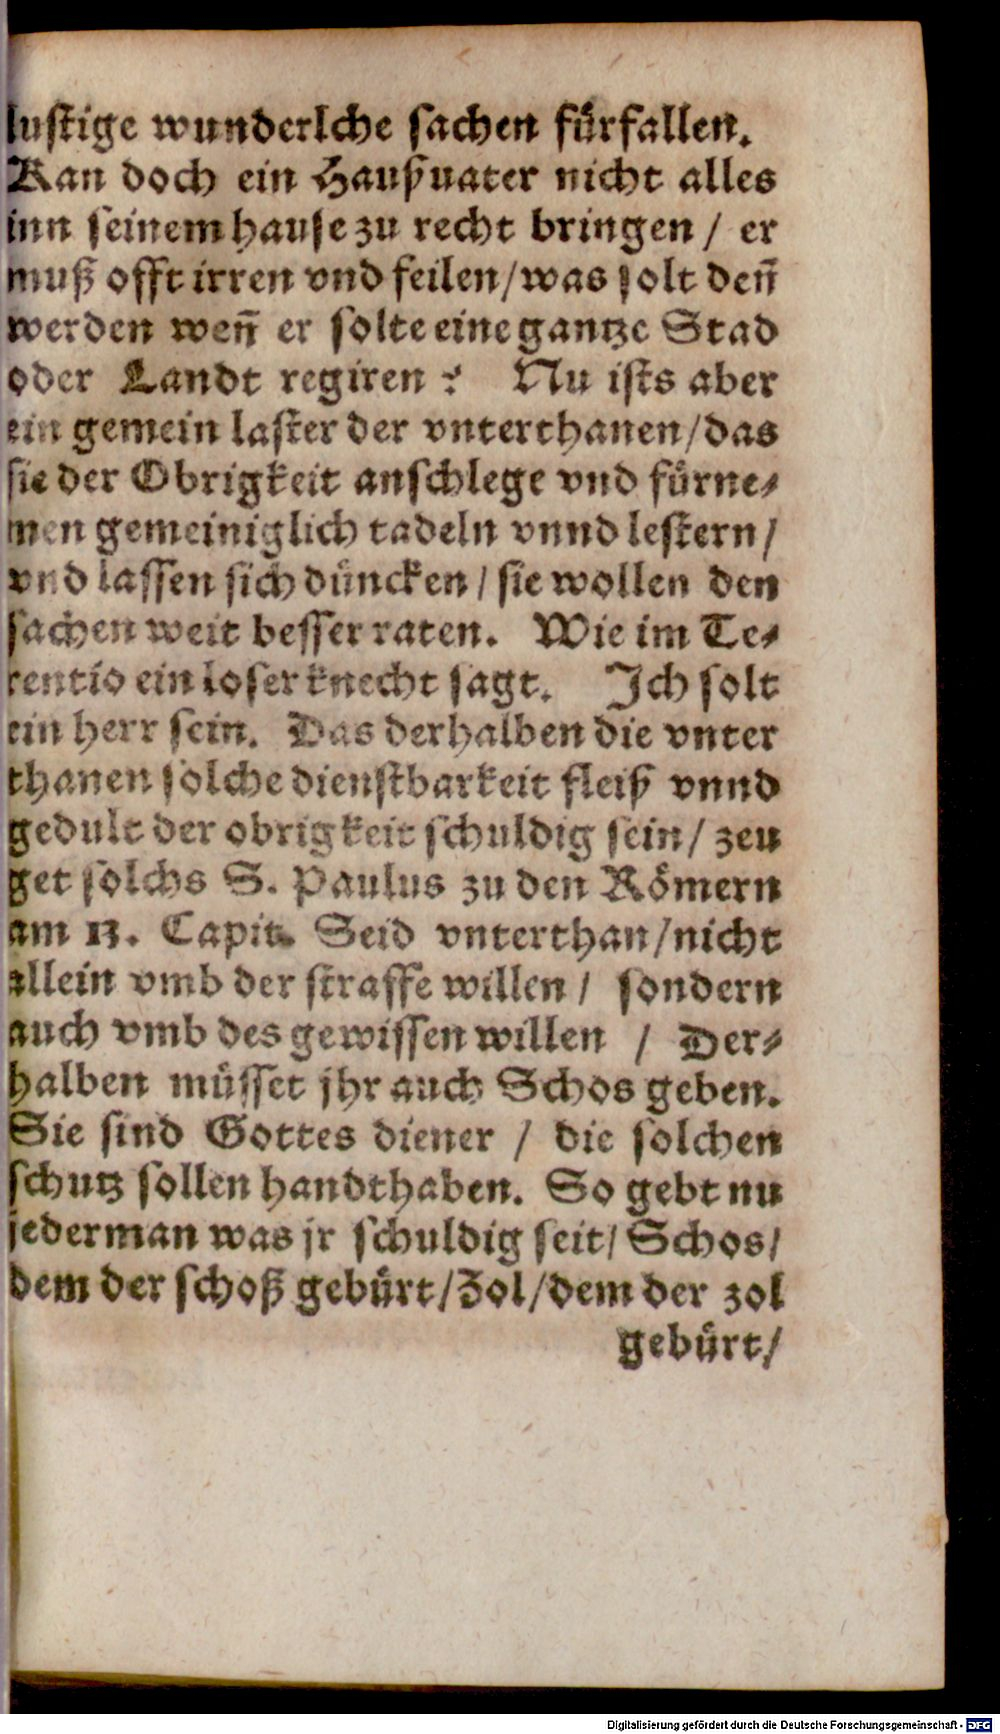 lustige wunderlche sachen fürfallen.
Kan doch ein Haußuater nicht alles
inn seinem hause zu recht bringen / er
muß offt irren vnd feilen/was solt den̄
werden wen̄ er solte eine gantze Stad
oder Landt regiren ? Nu ists aber
ein gemein laster der vnterthanen/das
sie der Obrigkeit anschlege vnd fürne⸗
men gemeiniglich tadeln vnnd lestern/
vnd lassen sich düncken / sie wollen den
sachen weit besser raten. Wie im Te⸗
rentio ein loser knecht sagt. Ich solt
ein herr sein. Das derhalben die vnter
thanen solche dienstbarkeit fleiß vnnd
gedult der obrigkeit schuldig sein/ zeu
get solchs S. Paulus zu den Römern
am 13. Capit. Seid vnterthan/nicht
allein vmb der straffe willen / sondern
auch vmb des gewissen willen / Der⸗
halben müsset jhr auch Schos geben.
Sie sind Gottes diener / die solchen
schutz sollen handthaben. So gebt nu
jederman was jr schuldig seit/ Schos/
dem der schoß gebürt/Zol/dem der zol
gebürt/
Digitalisierung gefördert durch die Deutsche Forschungsgemeinschaft - DFG